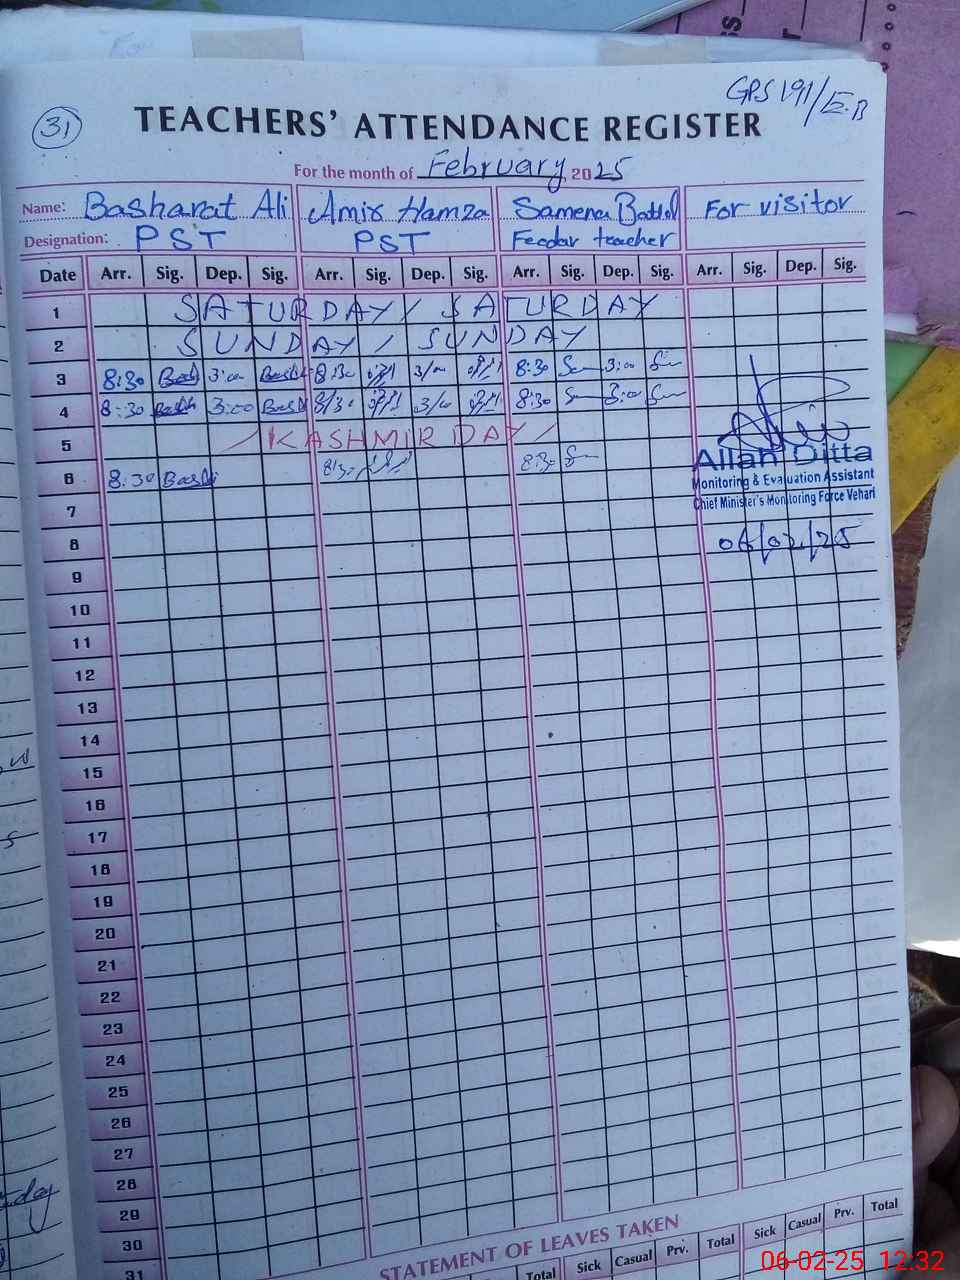 GPS 191/E.B
31
TEACHERS' ATTENDANCE REGISTER
For the month of February 2025
Name: Basharat Ali Amir Hamza Samena Batool For visitor
Designation: PST PST Feedar teacher
Date Arr. Sig. Dep. Sig. Arr. Sig. Dep. Sig. Arr. Sig. Dep. Sig. Arr. Sig. Dep. Sig.
1 SATURDAY / SATURDAY
2 SUNDAY / SUNDAY
3 8:30 Bash 3:00 Bash 8:30 3/00 8:30 3:00
4 8:30 Bash 3:00 Bash 8/30 3/00 8:30 3:00
5 / KASHMIR DAY /
6 8:30 Bash 8:30 8:30
Allah Ditta
Monitoring & Evaluation Assistant
Chief Minister's Monitoring Force Vehari
7
8 06/02/25
9
10
11
12
13
14
15
16
17
18
19
20
21
22
23
24
25
26
27
28
29
30
31
STATEMENT OF LEAVES TAKEN
Total Sick Casual Prv. Total Sick Casual Prv. Total
06-02-25 12:32